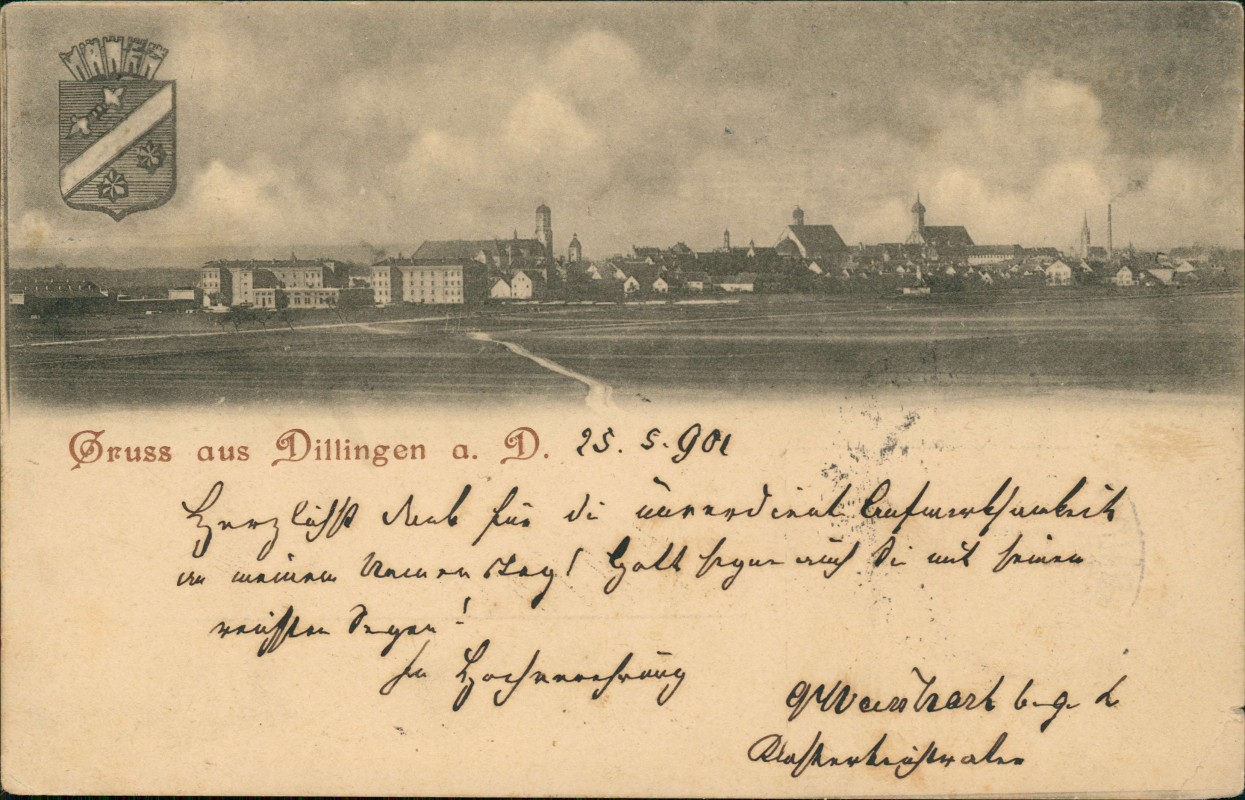 Gruss aus Dillingen a. D. 25. 5. 901
Herzlichst Dank für die unverdiente Aufmerksamkeit
an meinem Namenstag! Gott segne auch Sie mit seinen
reichsten Segen!
In Hochverehrung
b. g. R.
Klosterbeichtvater